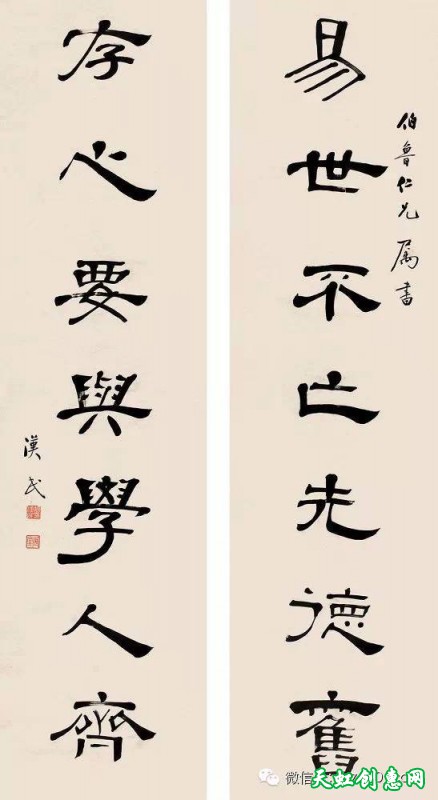 伯魯仁兄属書
易世不亡先德舊
存心要與學人齊
漢民
微信
天虹创惠网